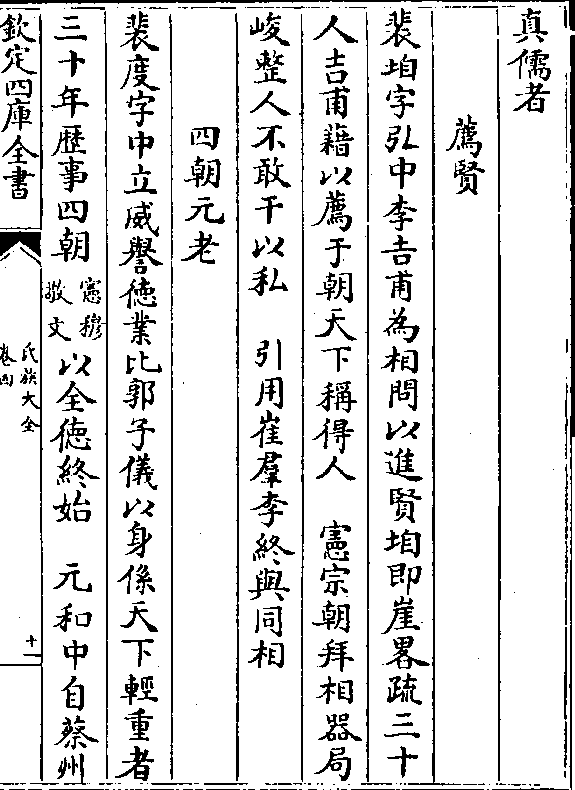 真儒者
薦賢
裴垍字弘中李吉甫為相問以進賢垍即崖畧疏三十
人吉甫藉以薦于朝天下稱得人　憲宗朝拜相器局
峻整人不敢干以私　引用崔羣李終與同相
四朝元老
裴度字中立威譽徳業比郭子儀以身係天下輕重者
三十年歴事四朝憲穆敬文以全徳終始　元和中自蔡州
欽定四庫全書
氏族大全
卷四
十一